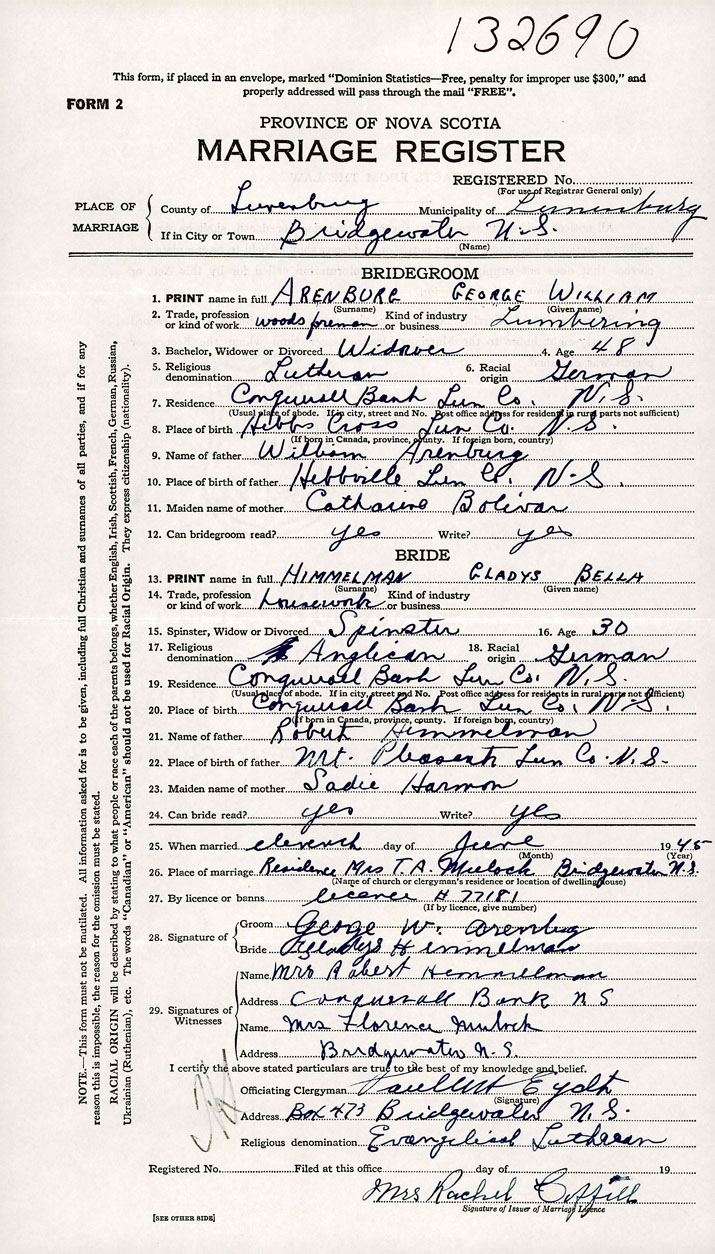 132690
This form, if placed in an envelope, marked "Dominion Statistics—Free, penalty for improper use $300," and
properly addressed will pass through the mail "FREE".
FORM 2
PROVINCE OF NOVA SCOTIA
MARRIAGE REGISTER
REGISTERED No.
(For use of Registrar General only)
PLACE OF MARRIAGE
County of Lunenburg Municipality of Lunenburg
If in City or Town Bridgewater N.S.
(Name)
BRIDEGROOM
1. PRINT name in full ARENBURG GEORGE WILLIAM
(Surname) (Given name)
2. Trade, profession or kind of work woods foreman Kind of industry or business Lumbering
3. Bachelor, Widower or Divorced Widower 4. Age 48
5. Religious denomination Lutheran 6. Racial origin German
7. Residence Conquerall Bank Lun Co. N.S.
(Usual place of abode. If in city, street and No. Post office address for residents in rural parts not sufficient)
8. Place of birth Hebbs Cross Lun Co. N.S.
(If born in Canada, province, county. If foreign born, country)
9. Name of father William Arenburg
10. Place of birth of father Hebbville Lun Co. N.S.
11. Maiden name of mother Catharine Bolivar
12. Can bridegroom read? yes Write? yes
BRIDE
13. PRINT name in full HIMMELMAN GLADYS BELLA
(Surname) (Given name)
14. Trade, profession or kind of work housework Kind of industry or business
15. Spinster, Widow or Divorced Spinster 16. Age 30
17. Religious denomination Anglican 18. Racial origin German
19. Residence Conquerall Bank Lun Co. N.S.
(Usual place of abode. If in city, street and No. Post office address for residents in rural parts not sufficient)
20. Place of birth Conquerall Bank Lun Co. N.S.
(If born in Canada, province, county. If foreign born, country)
21. Name of father Robert Himmelman
22. Place of birth of father Mt. Pleasant Lun Co. N.S.
23. Maiden name of mother Sadie Harmon
24. Can bride read? yes Write? yes
25. When married eleventh day of June 1945
(Month) (Year)
26. Place of marriage Residence Mrs T.A. Mulock Bridgewater N.S.
(Name of church or clergyman's residence or location of dwelling house)
27. By licence or banns licence # 77181
(If by licence, give number)
28. Signature of
Groom George W. Arenburg
Bride Gladys Himmelman
29. Signatures of Witnesses
Name Mrs Robert Hemmelman
Address Conquerall Bank N S
Name Mrs Florence Mulock
Address Bridgewater N.S.
I certify the above stated particulars are true to the best of my knowledge and belief.
Officiating Clergyman Eydt
(Signature)
Address Box 473 Bridgewater N.S.
Religious denomination Evangelical Lutheran
Registered No. Filed at this office day of 19
Mrs Rachel Coffill
Signature of Issuer of Marriage Licence
[SEE OTHER SIDE]
NOTE.—This form must not be mutilated. All information asked for is to be given, including full Christian and surnames of all parties, and if for any
reason this is impossible, the reason for the omission must be stated.
RACIAL ORIGIN will be described by stating to what people or race each of the parents belongs, whether English, Irish, Scottish, French, German, Russian,
Ukrainian (Ruthenian), etc. The words "Canadian" or "American" should not be used for Racial Origin. They express citizenship (nationality).